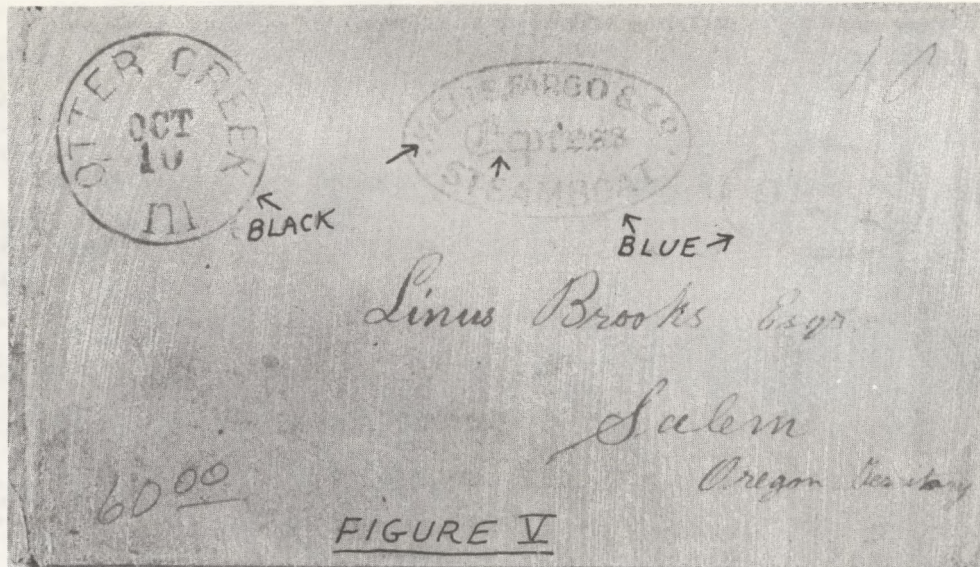 OTTER CREEK
OCT
10
Ill
10
WELLS, FARGO & CO.
Express
STEAMBOAT
BLACK
BLUE
Linus Brooks Esqr.
Salem
Oregon Territory
6000
FIGURE V